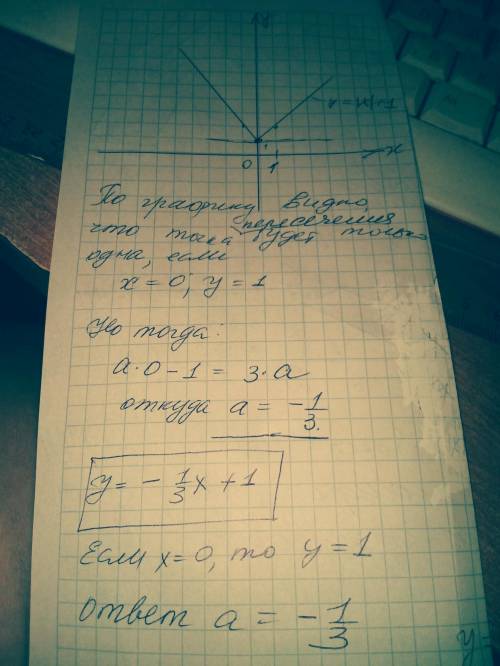 y
y = |x|+1
x
0
1
По графику видно,
что точка пересечения будет только
одна, если
x = 0, y = 1
Но тогда:
a·0 - 1 = 3·a
откуда a = -1/3.
y = -1/3 x + 1
Если x = 0, то y = 1
ответ a = -1/3
y=